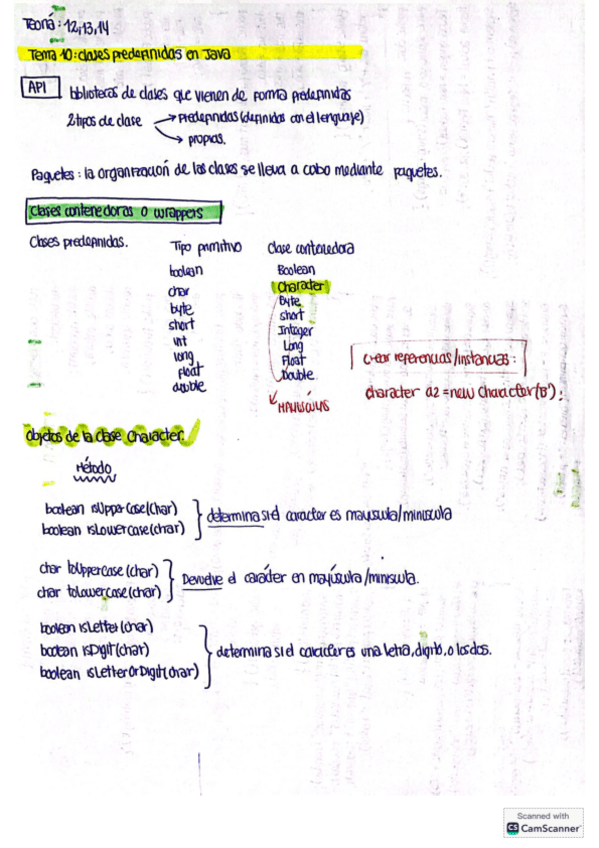 Teoría: 12,13,14
Tema 10: clases predefinidas en Java
API bibliotecas de clases que vienen de forma predefinidas
2 tipos de clase → Predefinidas (definidas con el lenguaje)
→ propias.
Paquetes: la organización de las clases se lleva a cabo mediante paquetes.
Clases contenedoras o wrappers
Clases predefinidas. Tipo primitivo Clase contenedora
boolean Boolean
char Character
byte Byte
short Short
int Integer
long Long
float Float
double Double
MAYÚSCULAS
crear referencias/instancias:
character a2 = new Character('B');
Objetos de la clase Character.
Método
boolean isUpperCase(char)
boolean isLowercase(char)
determina si el caracter es mayuscula/miniscula
char toUpperCase(char)
char toLowercase(char)
Devuelve el carácter en mayúscula/miniscula.
boolean isLetter(char)
boolean isDigit(char)
boolean isLetterOrDigit(char)
determina si el carácter es una letra, digito, o los dos.
Scanned with
CS CamScanner